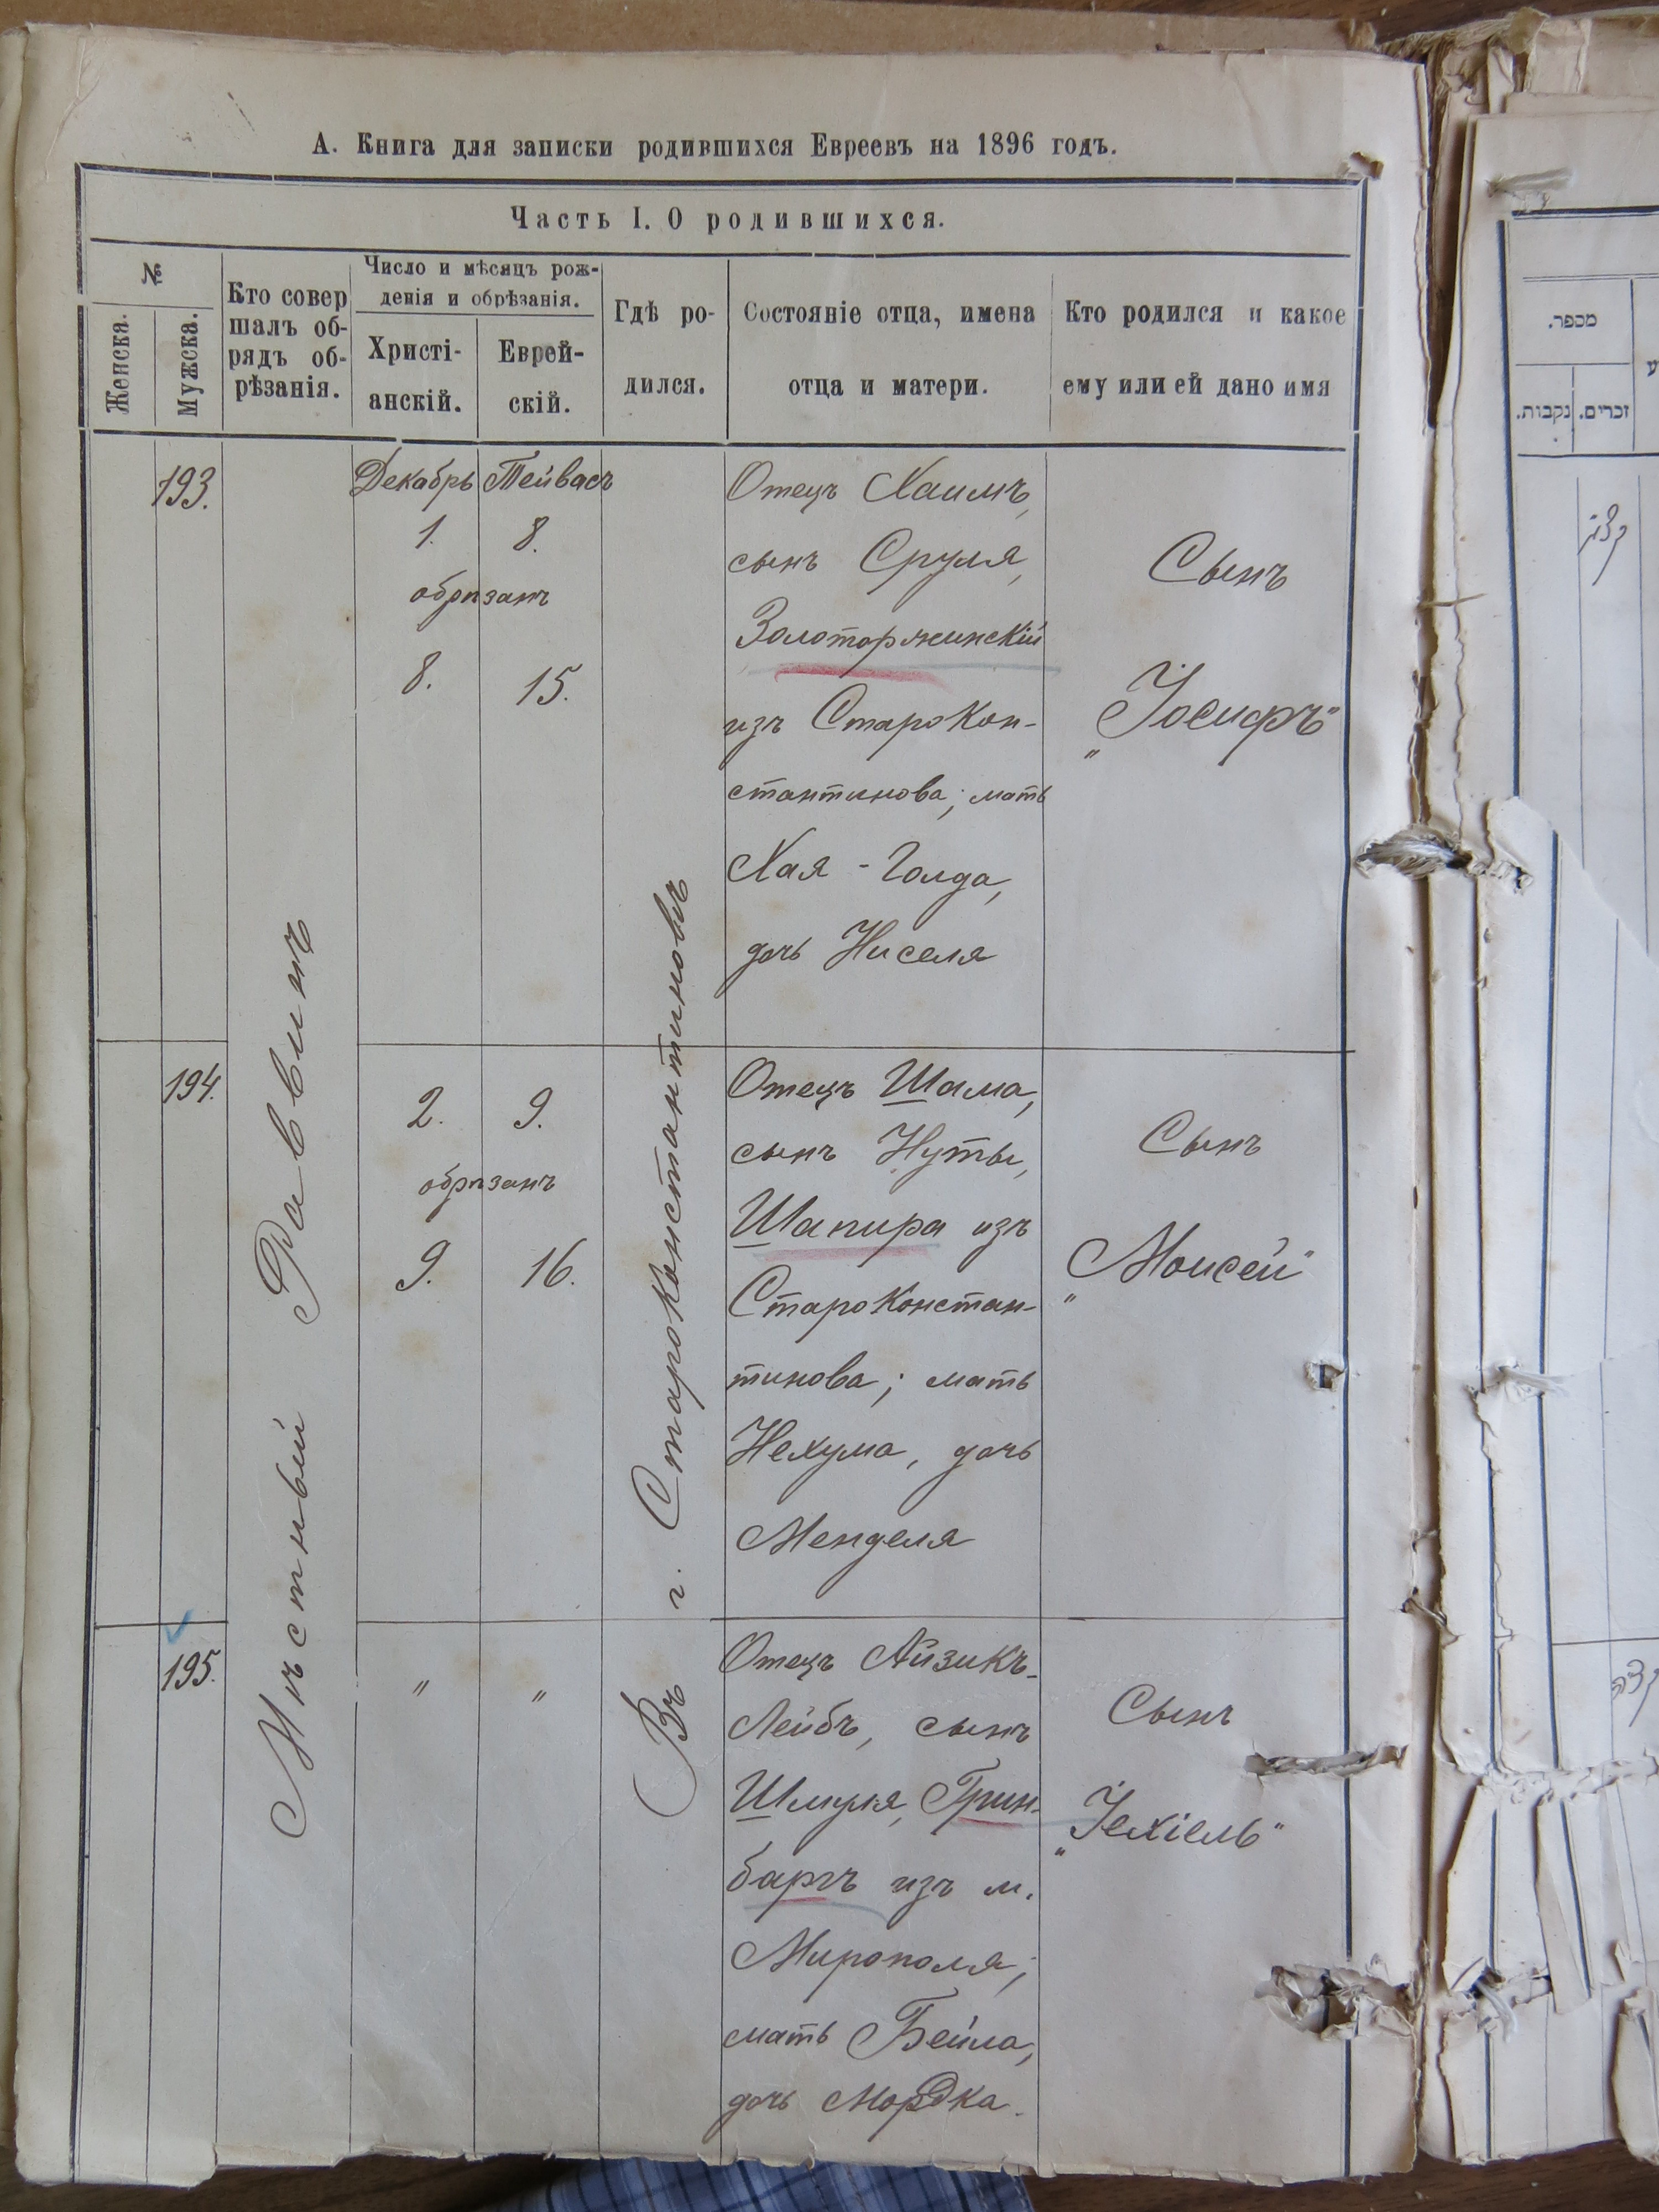 А. Книга для записки родившихся Евреевъ на 1896 годъ.
Часть I. О родившихся.
№
Женска.
Мужска.
Кто совер
шалъ об-
рядъ об-
рѣзанія.
Число и мѣсяцъ рож-
денія и обрѣзанія.
Христі-
анскій.
Еврей-
скій.
Гдѣ ро-
дился.
Состояніе отца, имена
отца и матери.
Кто родился и какое
ему или ей дано имя
Мѣстный Раввинъ
Въ г. Староконстантиновѣ
193.
Декабрь Тейвасъ
1. 8.
обрѣзанъ
8. 15.
Отецъ Хаимъ,
сынъ Сруля,
Золоторжинскій
изъ Старокон-
стантинова; мать
Хая - Голда,
дочь Ниселя
Сынъ
„Іосифъ"
194.
2. 9.
обрѣзанъ
9. 16.
Отецъ Шама,
сынъ Нуты,
Шапира изъ
Староконстан-
тинова; мать
Нехума, дочь
Менделя
Сынъ
„Моисей"
195.
" "
Отецъ Айзикъ-
Лейбъ, сынъ
Шмуля, Грин-
баргъ изъ м.
Мирополя;
мать Бейла,
дочь Мордка.
Сынъ
„Іехіель"
מספר.
זכרים.
נקבות.